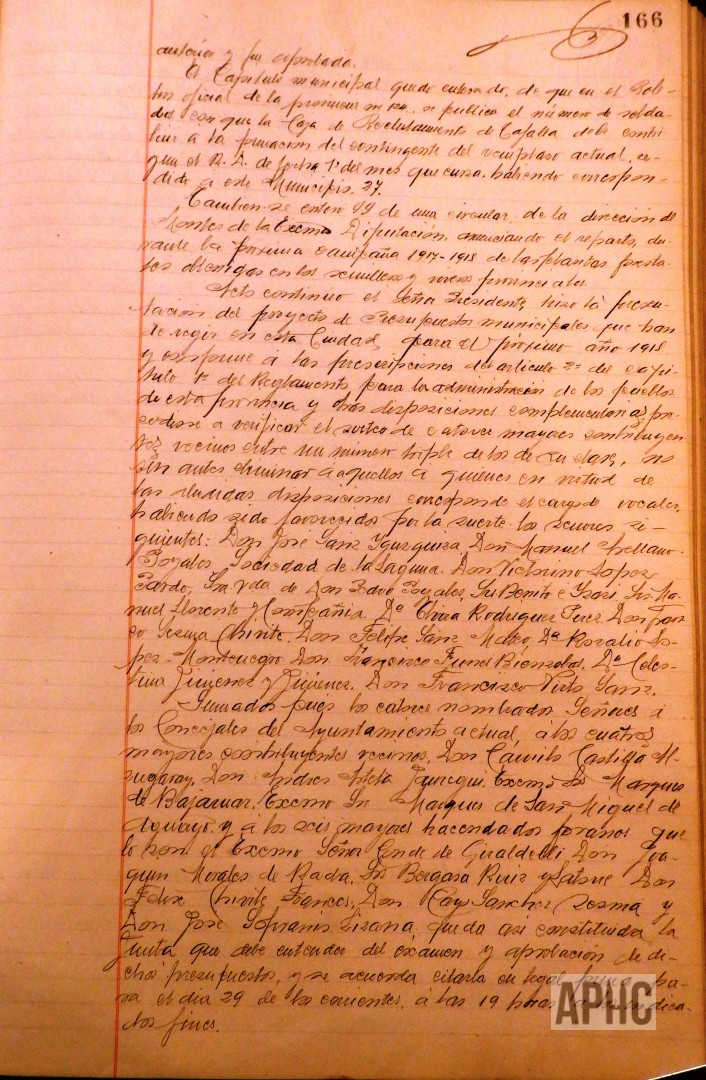 166
anterior y fue aprobada.
El Capitulo municipal quedó enterado, de que en el Bole-
tin oficial de la provincia nº se publica el número de solda-
dos con que la Caja de Reclutamiento de Tafalla debe contri-
buir a la formacion del contingente del reemplazo actual, se-
gun el R. D. de fecha 1º del mes que cursa, habiendo correspon-
dido a este Municipio 27.
Tambien se enteró de una circular de la direccion de
Montes de la Excma Diputación, anunciando el reparto, du-
rante la proxima campaña 1917-1918 de las plantas foresta-
les obtenidas en los semilleros y viveros provinciales.
Acto continuo el Señor Presidente, hizo la presen-
tacion del proyecto de Presupuestos municipales que han
de regir en esta Ciudad, para el proximo año 1918
y conforme a las prescripciones del articulo 2º del capi-
tulo 1º del Reglamento para la administración de los pueblos
de esta provincia y otras disposiciones complementarias, pro-
cediose a verificar el sorteo de catorce mayores contribuyen-
tes vecinos entre un numero triple de los de su clase, no
sin antes eliminar a aquellos a quienes en virtud de
las aludidas disposiciones corresponde el cargo de vocales,
habiendo sido favorecidos por la suerte los señores si-
guientes: Don José Sanz Don Manuel Arellano
Sociedad de la Laguna. Don Victorino Lopez
Pardo, Sra Vda de Don Sres Benito e Sres Ma-
nuel Llorente y Compañia. Dª Rodriguez Perez. Don Fran-
co Sesma Chivite. Don Felipe Sanz Mateo, Dª Rosalio Lo-
pez-Montenegro. Don Francisco Dª Celes-
tina Jimenez y Jimenez. Don Francisco Sanz.
Sumados pues los catorce nombrados Señores á
los Concejales del Ayuntamiento actual, á los cuatro
mayores contribuyentes vecinos, Don Camilo Castilla
Don Jauregui. Excmo Sr Marques
de Bajamar. Excmo Sr Marques de San Miguel de
Aguayo y á los seis mayores hacendados foranos que
lo son el Excmo Señor Conde de Gualdelli Don Joa-
quin Morales de Rada. Sr Bergasa Ruiz Don
Felix Chivite Frances, Don Cayo Sanchez Sesma y
Don José Sopranis Lizana, queda asi constituida la
junta que debe entender del examen y aprobación de di-
chos presupuestos, y se acuerda citarla en legal forma pa-
ra el dia 29 de los corrientes, á las 19 horas
dos fines.
APHC